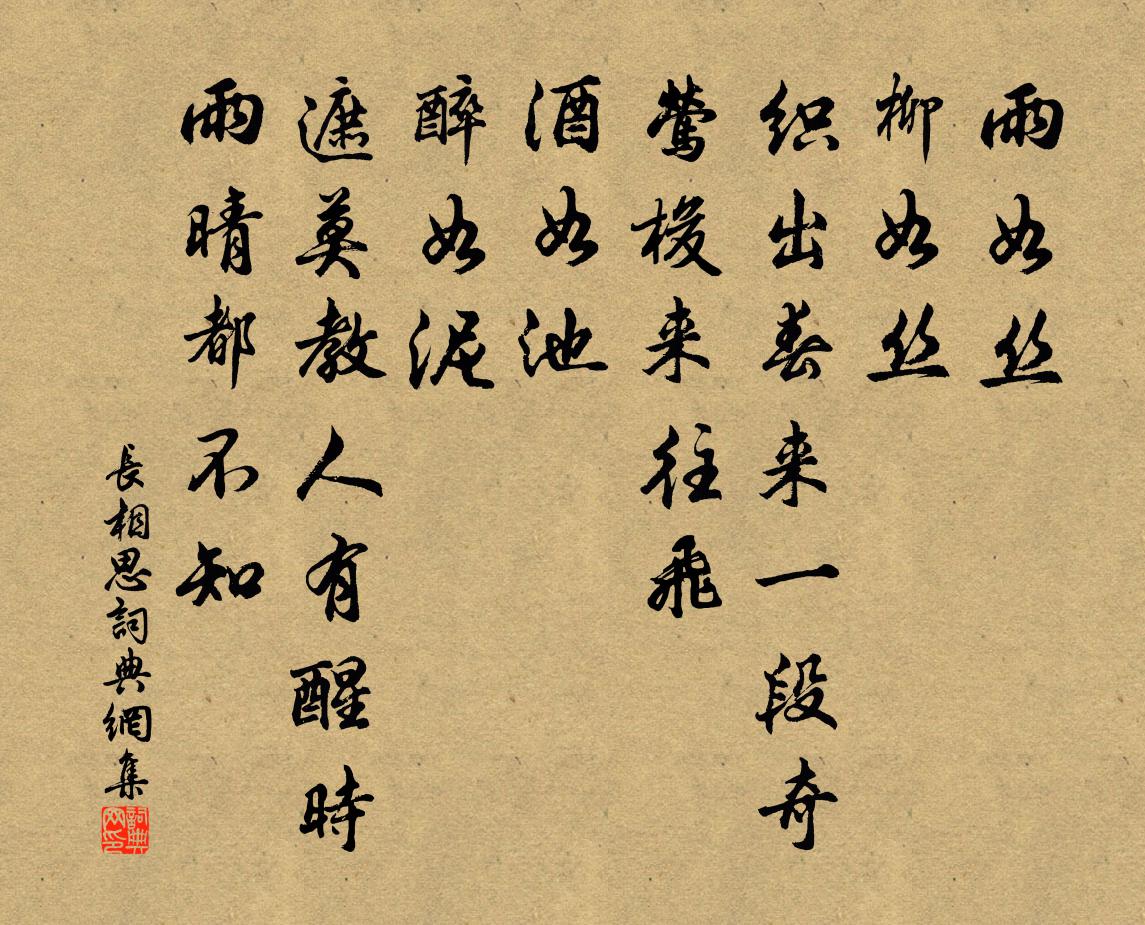 雨如丝
柳如丝
织出春来一段奇
莺梭来往飞
酒如池
醉如泥
遮莫教人有醒时
雨晴都不知
長相思詞典網集
詞典网印